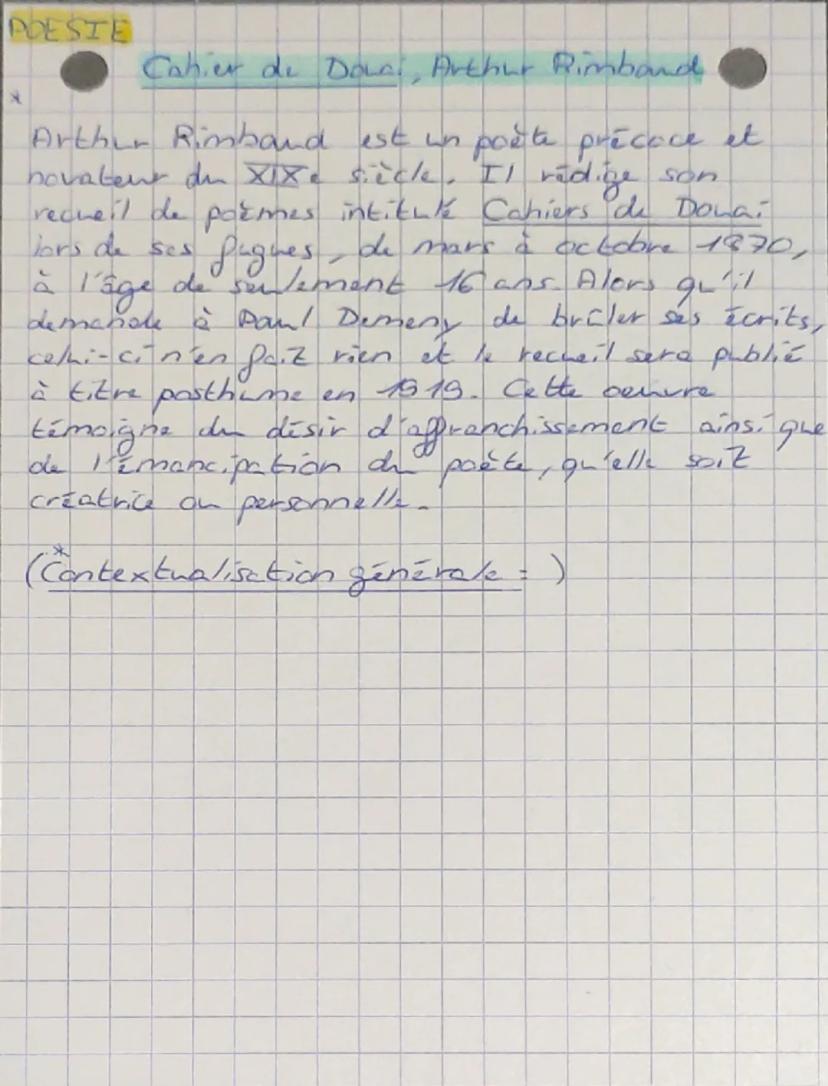 POESIE
Cahier de Douai, Arthur Rimbaud
*
Arthur Rimbaud est un poète précoce et
novateur du XIXe siècle. Il rédige son
recueil de poèmes intitulé Cahiers de Douai
lors de ses fugues, de mars à octobre 1870,
à l'âge de seulement 16 ans. Alors qu'il
demande à Paul Demeny de brûler ses écrits,
celui-ci n'en fait rien et le recueil sera publié
à titre posthume en 1919. Cette oeuvre
témoigne du désir d'affranchissement ainsi que
de l'émancipation du poète, qu'elle soit
créatrice ou personnelle.
(*Contextualisation générale : )